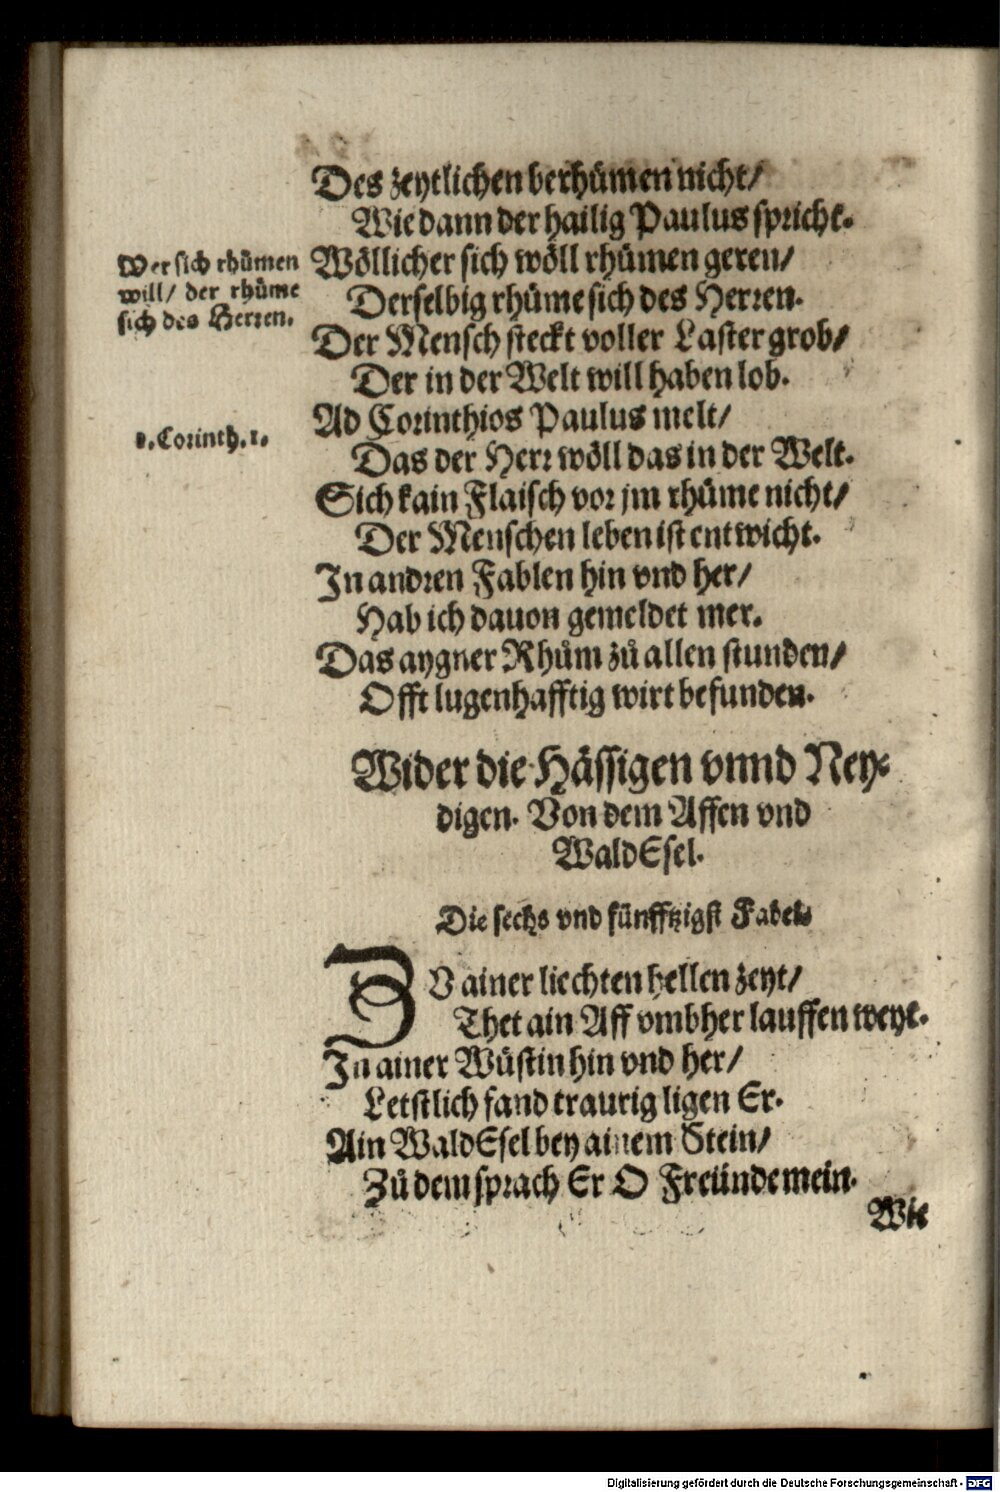 Des zeytlichen berhümen nicht/
Wie dann der hailig Paulus spricht.
Wer sich rhümen
will/ der rhüme
sich des Herren.
Wöllicher sich wöll rhümen geren/
Derselbig rhüme sich des Herren.
Der Mensch steckt voller Laster grob/
Der in der Welt will haben lob.
1. Corinth. 1.
Ad Corinthios Paulus melt/
Das der Herr wöll das in der Welt.
Sich kain Flaisch vor jm rhüme nicht/
Der Menschen leben ist entwicht.
In andren Fablen hin vnd her/
Hab ich dauon gemeldet mer.
Das aygner Rhům zů allen stunden/
Offt lugenhafftig wirt befunden.
Wider die Hässigen vnnd Ney-
digen. Von dem Affen vnd
WaldEsel.
Die sechs vnd fünfftzigst Fabel.
ZV ainer liechten hellen zeyt/
Thet ain Aff vmbher lauffen weyt.
In ainer Wüstin hin vnd her/
Letstlich fand traurig ligen Er.
Ain WaldEsel bey ainem Stein/
Zů dem sprach Er O Freünde mein.
Wie
Digitalisierung gefördert durch die Deutsche Forschungsgemeinschaft - DFG